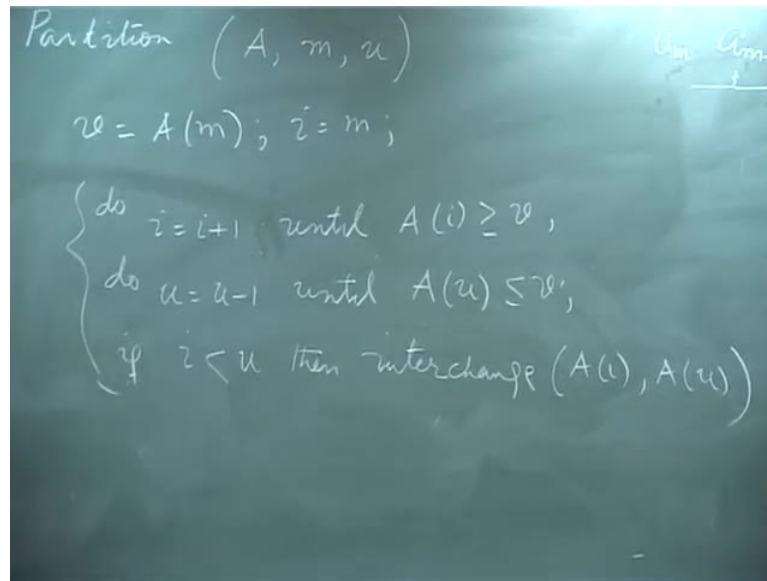 Partition (A, m, u)
am am
v = A(m); i = m;
do i = i+1 until A(i) ≥ v,
do u = u-1 until A(u) ≤ v;
if i < u then interchange (A(i), A(u))